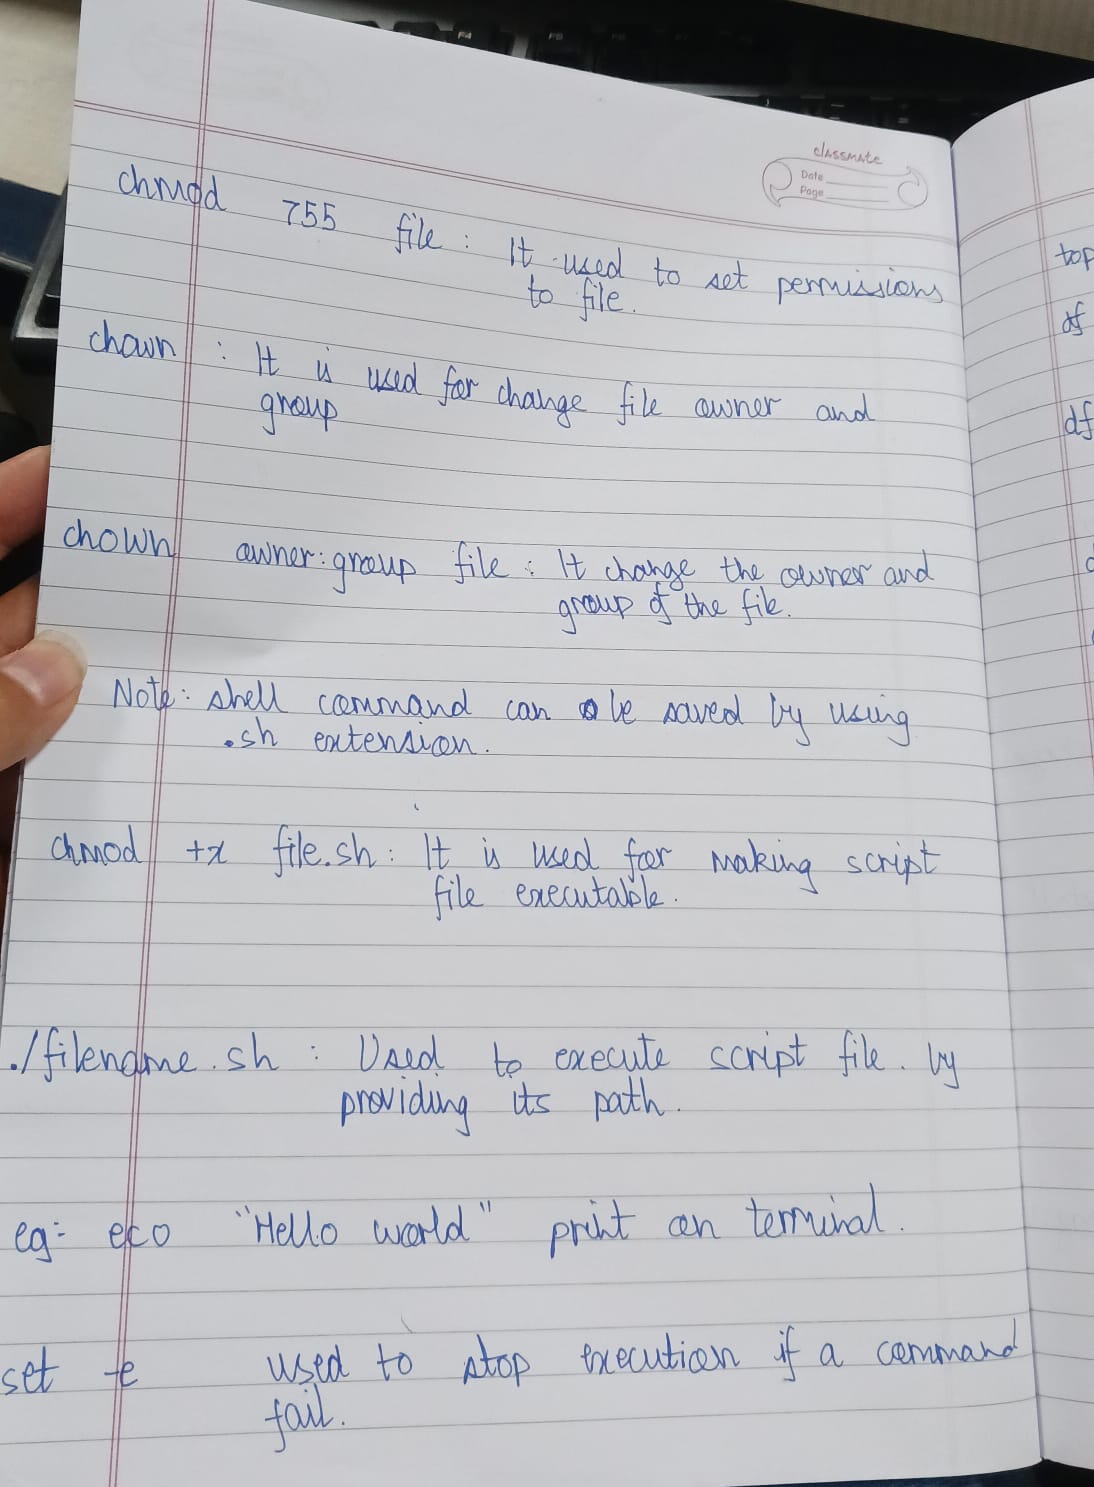 classmate
Date
Page
chmod 755 file : It used to set permissions
to file.
chown : It is used for change file owner and
group
chown owner:group file : It change the owner and
group of the file.
Note: shell command can be saved by using
.sh extension.
chmod +x file.sh : It is used for making script
file executable.
./filename.sh : Used to execute script file. by
providing its path.
eg:- eco "Hello world" print on terminal.
set -e used to stop execution if a command
fail.
top
df